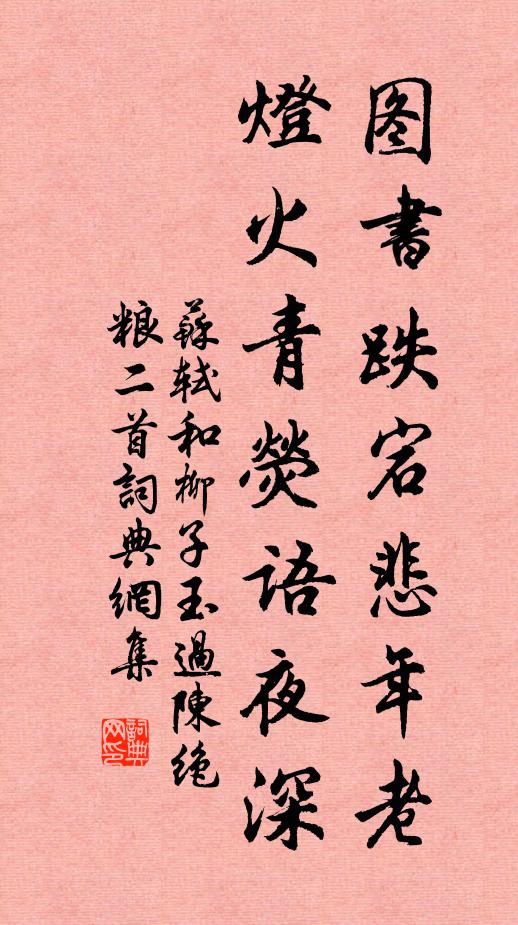 图書跌宕悲年老
燈火青熒語夜深
蘇軾和柳子玉過陳絶
粮二首詞典網集
詞典网印